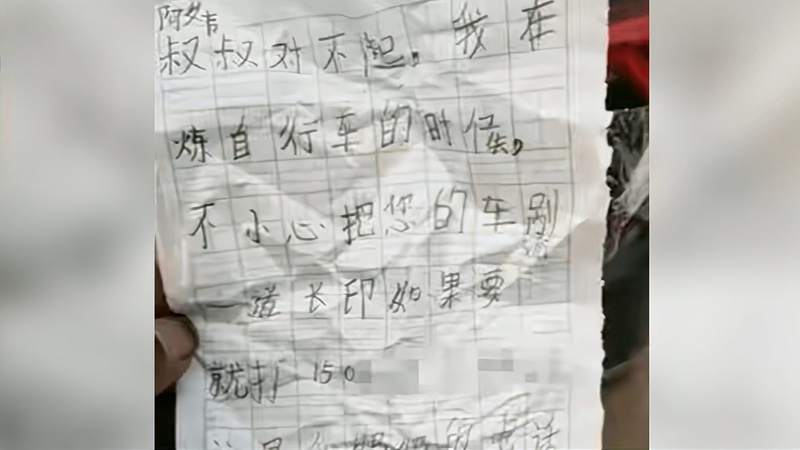 阿
叔叔对不起。我在
炼自行车的时候,
不小心把您的车剐
一道长印如果要
就打150
的电话